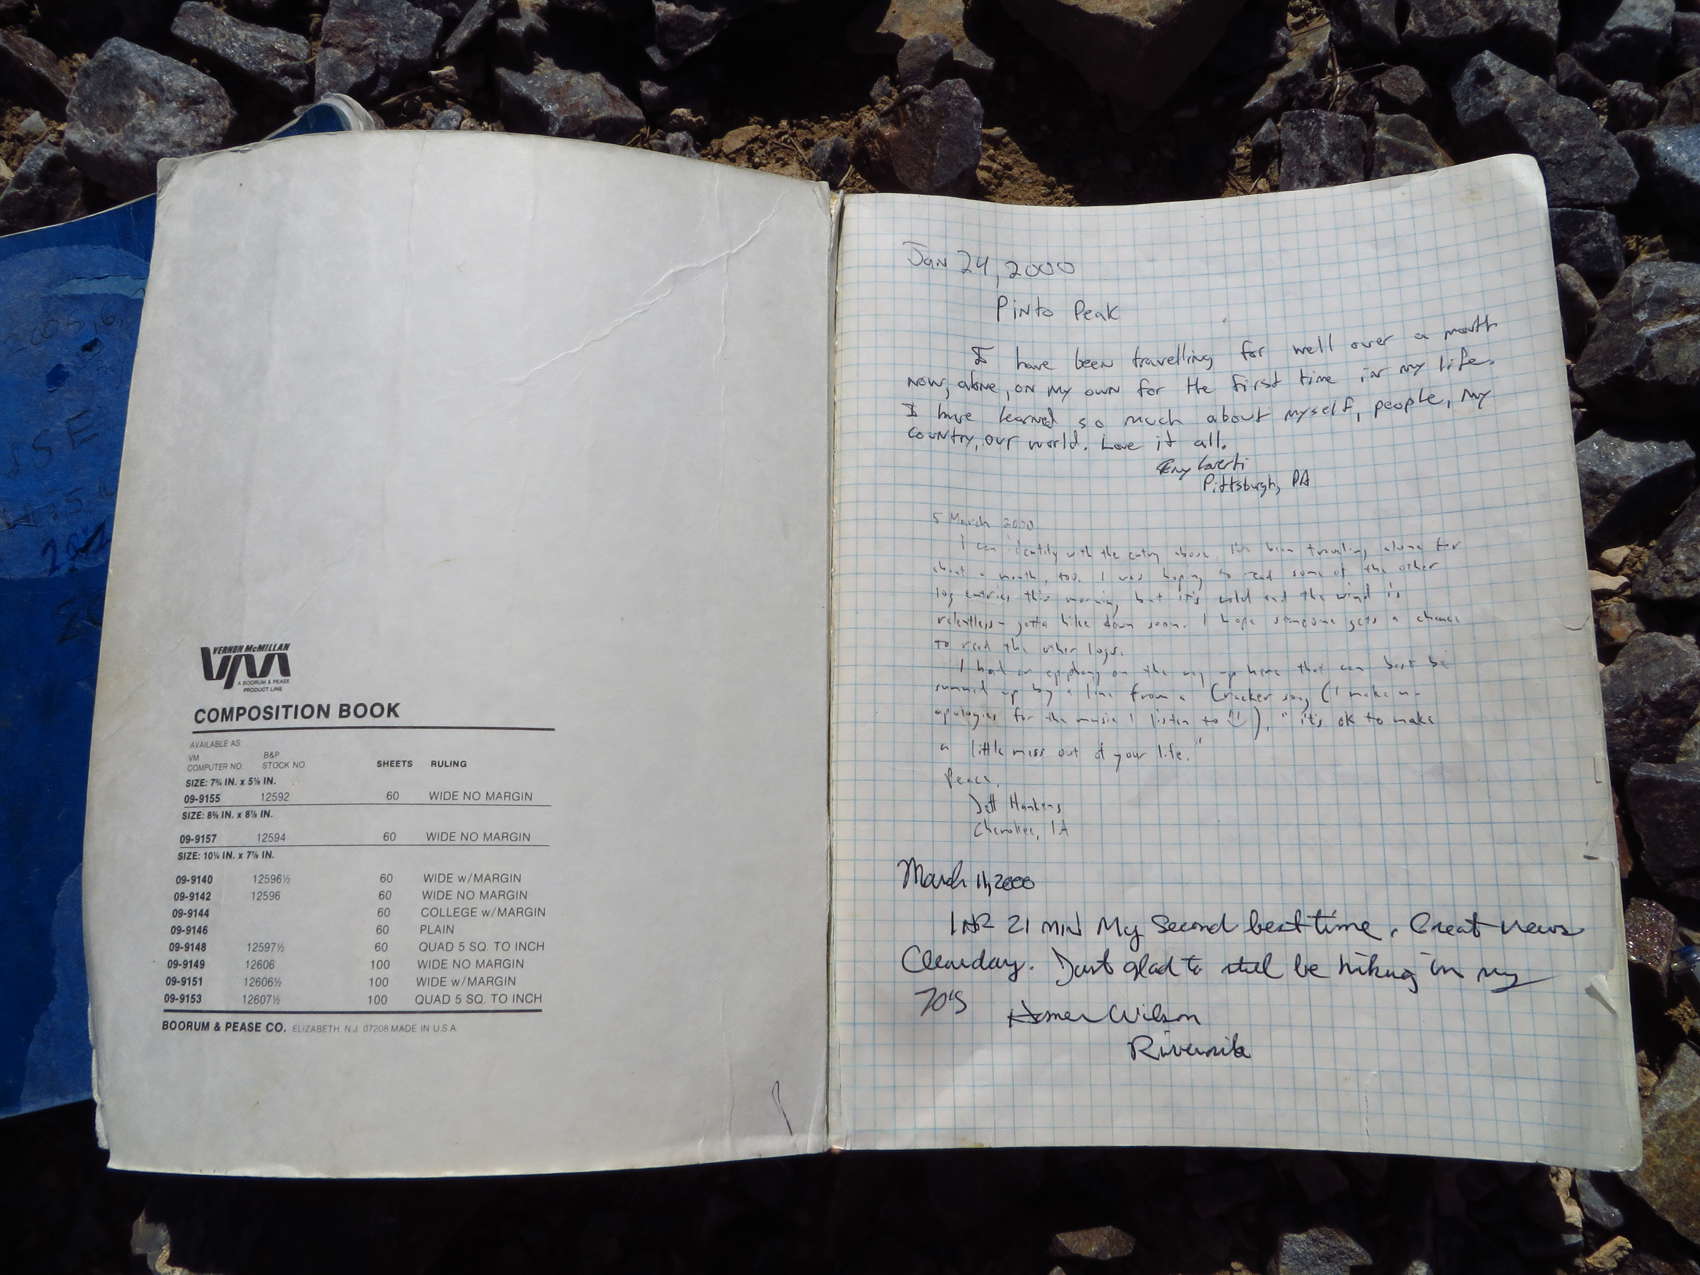 VERNON McMILLAN
VM
A BOORUM & PEASE
PRODUCT LINE
COMPOSITION BOOK
AVAILABLE AS:
VM B&P
COMPUTER NO. STOCK NO. SHEETS RULING
SIZE: 7¾ IN. x 5⅛ IN.
09-9155 12592 60 WIDE NO MARGIN
SIZE: 8⅜ IN. x 6⅞ IN.
09-9157 12594 60 WIDE NO MARGIN
SIZE: 10¼ IN. x 7⅞ IN.
09-9140 12596½ 60 WIDE w/MARGIN
09-9142 12596 60 WIDE NO MARGIN
09-9144 60 COLLEGE w/MARGIN
09-9146 60 PLAIN
09-9148 12597½ 60 QUAD 5 SQ. TO INCH
09-9149 12606 100 WIDE NO MARGIN
09-9151 12606½ 100 WIDE w/MARGIN
09-9153 12607½ 100 QUAD 5 SQ. TO INCH
BOORUM & PEASE CO. ELIZABETH, N.J. 07208 MADE IN U.S.A.
Jan 24, 2000
Pinto Peak
I have been travelling for well over a month
now, alone, on my own for the first time in my life.
I have learned so much about myself, people, my
country, our world. Love it all.
Pittsburgh, PA
5 March 2000
I can identify with the entry above. I've been traveling alone for
about a month, too. I was hoping to read some of the other
log entries this morning, but it's cold and the wind is
relentless - gotta hike down soon. I hope someone gets a chance
to read the other logs.
I had an epiphany on the way up here that can best be
summed up by a line from a Cracker song (I make no
apologies for the music I listen to ☺). "it's ok to make
a little mess out of your life."
Peace,
Jeff
Cherokee, IA
March 11, 2000
1 HR 21 min My Second best time. Great views
Clear day. Just glad to still be hiking in my
70's Homer Wilson
Riverside